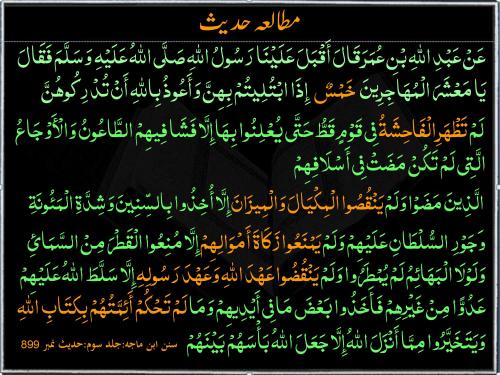 مطالعہ حدیث
عَنْ عَبْدِ اللّٰهِ بْنِ عُمَرَ قَالَ أَقْبَلَ عَلَيْنَا رَسُولُ اللّٰهِ صَلَّى اللّٰهُ عَلَيْهِ وَسَلَّمَ فَقَالَ
يَا مَعْشَرَ الْمُهَاجِرِينَ خَمْسٌ إِذَا ابْتُلِيتُمْ بِهِنَّ وَأَعُوذُ بِاللّٰهِ أَنْ تُدْرِكُوهُنَّ
لَمْ تَظْهَرِ الْفَاحِشَةُ فِي قَوْمٍ قَطُّ حَتَّى يُعْلِنُوا بِهَا إِلَّا فَشَا فِيهِمْ الطَّاعُونُ وَالْأَوْجَاعُ
الَّتِي لَمْ تَكُنْ مَضَتْ فِي أَسْلَافِهِمْ
الَّذِينَ مَضَوْا وَلَمْ يَنْقُصُوا الْمِكْيَالَ وَالْمِيزَانَ إِلَّا أُخِذُوا بِالسِّنِينَ وَشِدَّةِ الْمَئُونَةِ
وَجَوْرِ السُّلْطَانِ عَلَيْهِمْ وَلَمْ يَمْنَعُوا زَكَاةَ أَمْوَالِهِمْ إِلَّا مُنِعُوا الْقَطْرَ مِنْ السَّمَائِ
وَلَوْلَا الْبَهَائِمُ لَمْ يُمْطَرُوا وَلَمْ يَنْقُضُوا عَهْدَ اللّٰهِ وَعَهْدَ رَسُولِهِ إِلَّا سَلَّطَ اللّٰهُ عَلَيْهِمْ
عَدُوًّا مِنْ غَيْرِهِمْ فَأَخَذُوا بَعْضَ مَا فِي أَيْدِيهِمْ وَمَا لَمْ تَحْكُمْ أَئِمَّتُهُمْ بِكِتَابِ اللّٰهِ
وَيَتَخَيَّرُوا مِمَّا أَنْزَلَ اللّٰهُ إِلَّا جَعَلَ اللّٰهُ بَأْسَهُمْ بَيْنَهُمْ سنن ابن ماجہ:جلد سوم:حدیث نمبر 899